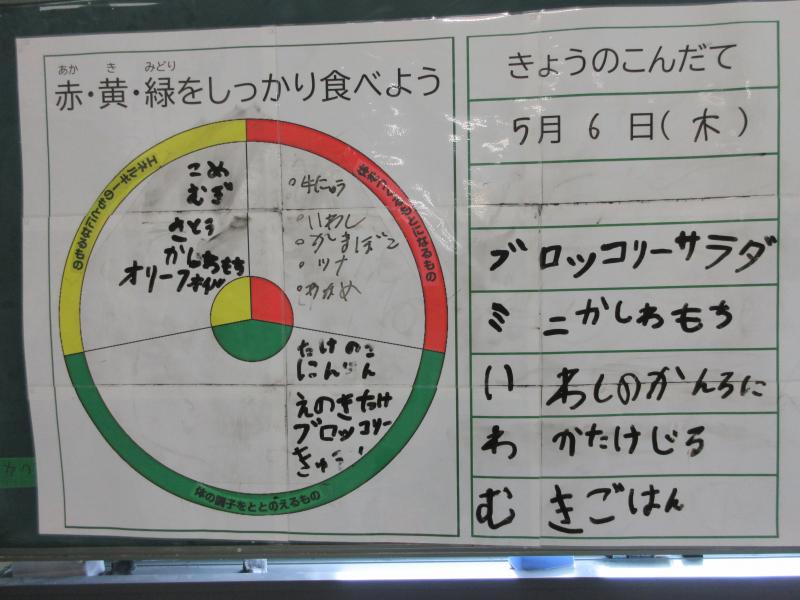 あか き みどり
赤・黄・緑をしっかり食べよう
エネルギーのもとになるもの
体をつくるもとになるもの
体の調子をととのえるもの
こめ
むぎ
さとう
かしわもち
オリーブオイル
・牛にゅう
・いわし
・かまぼこ
・ツナ
・わかめ
たけのこ
にんじん
えのきたけ
ブロッコリー
きょうのこんだて
5月 6 日(木)
ブロッコリーサラダ
ミニかしわもち
いわしのかんろに
わかたけじる
むぎごはん